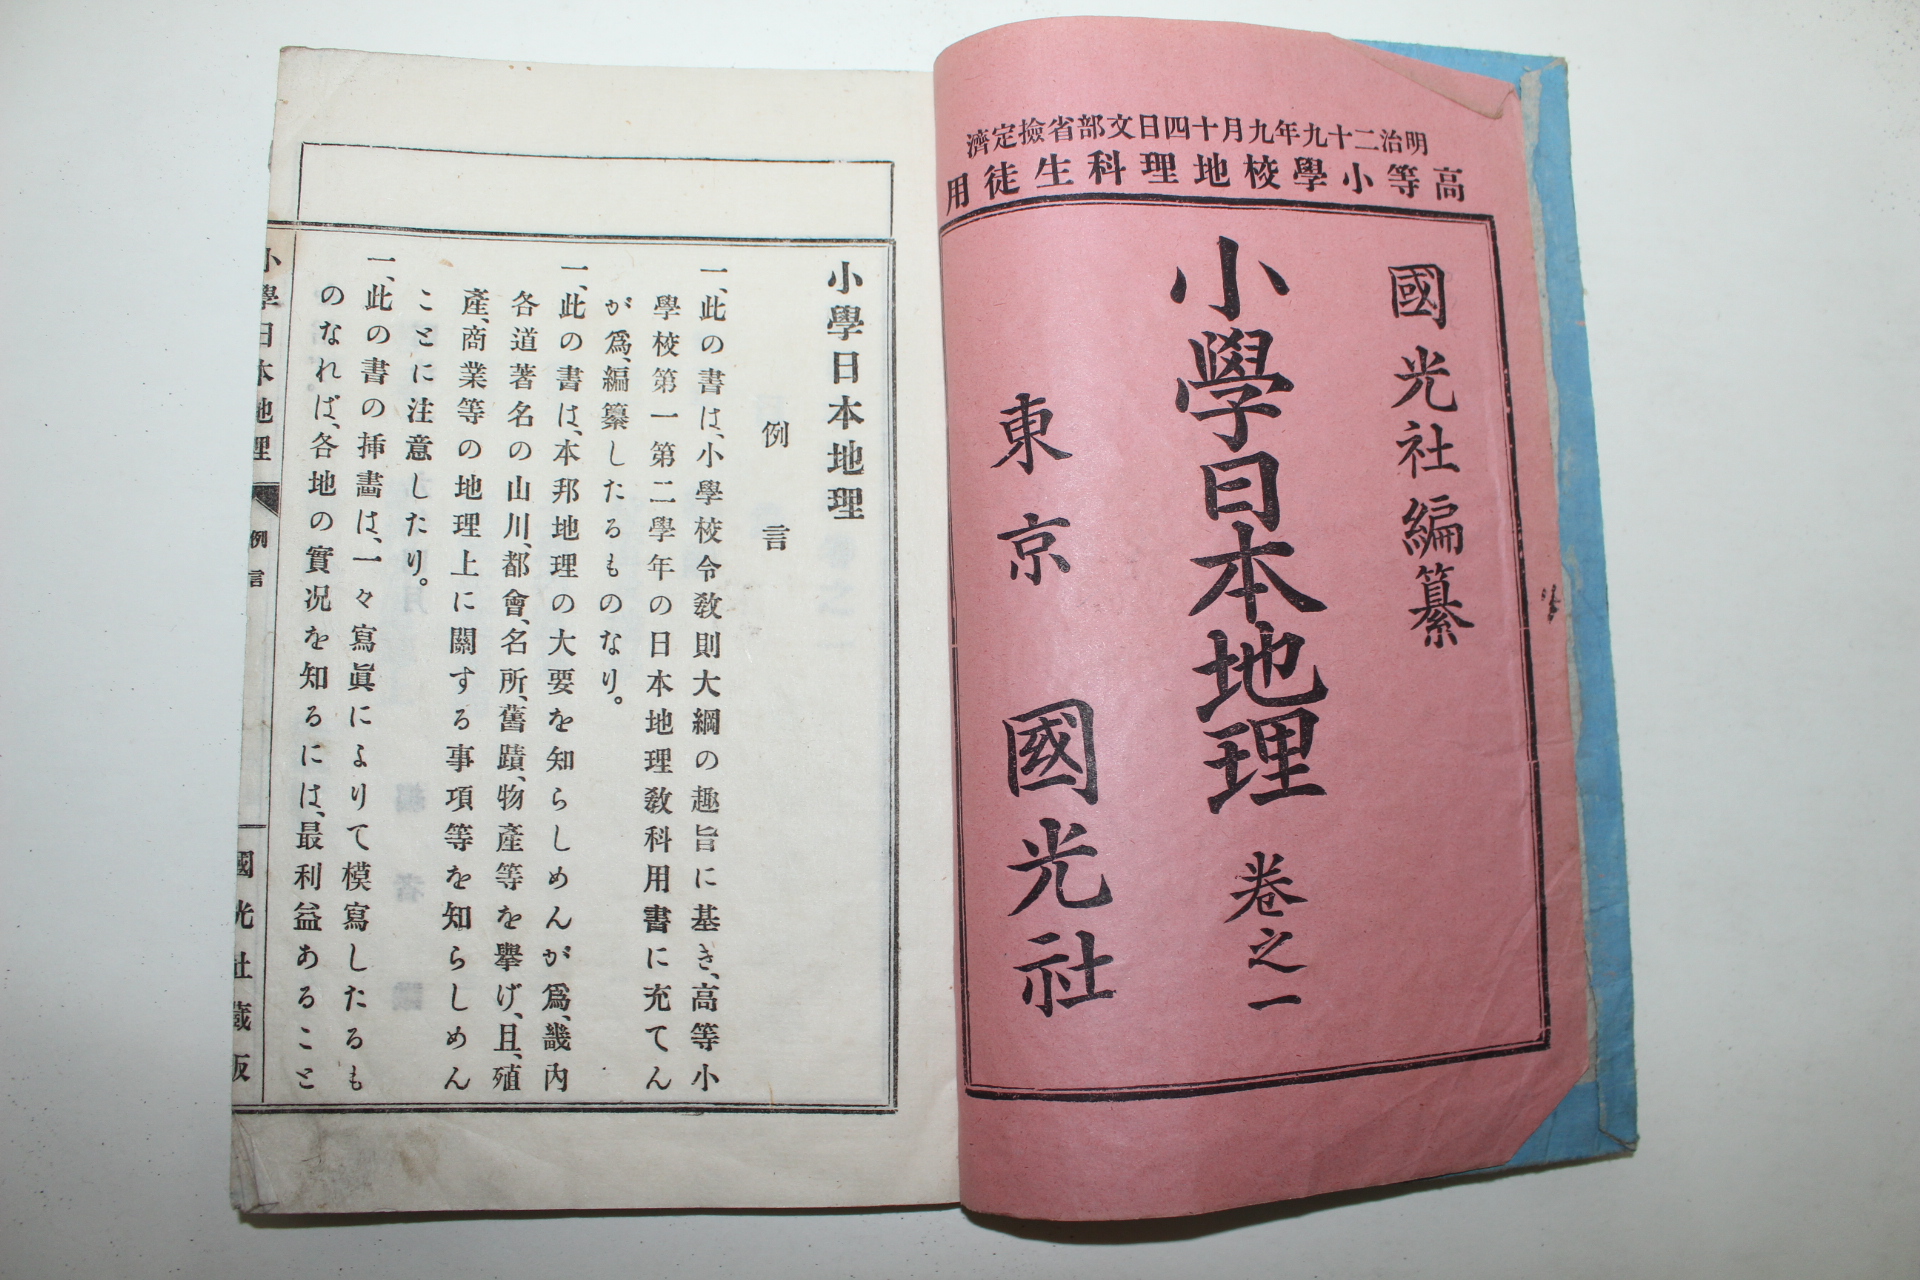 明治二十九年九月十四日文部省撿定濟
高等小學校地理科生徒用
國光社編纂
小學日本地理 卷之一
東京 國光社
小學日本地理
例言
一、此の書は、小學校令敎則大綱の趣旨に基き、高等小
學校第一第二學年の日本地理敎科用書に充てん
が爲、編纂したるものなり。
一、此の書は、本邦地理の大要を知らしめんが爲、畿內
各道著名の山川、都會、名所、舊蹟、物產等を擧げ、且、殖
產、商業等の地理上に關する事項等を知らしめん
ことに注意したり。
一、此の書の挿畵は、一々寫眞によりて模寫したるも
のなれば、各地の實况を知るには、最利益あること
小學日本地理 例言 國光社藏版